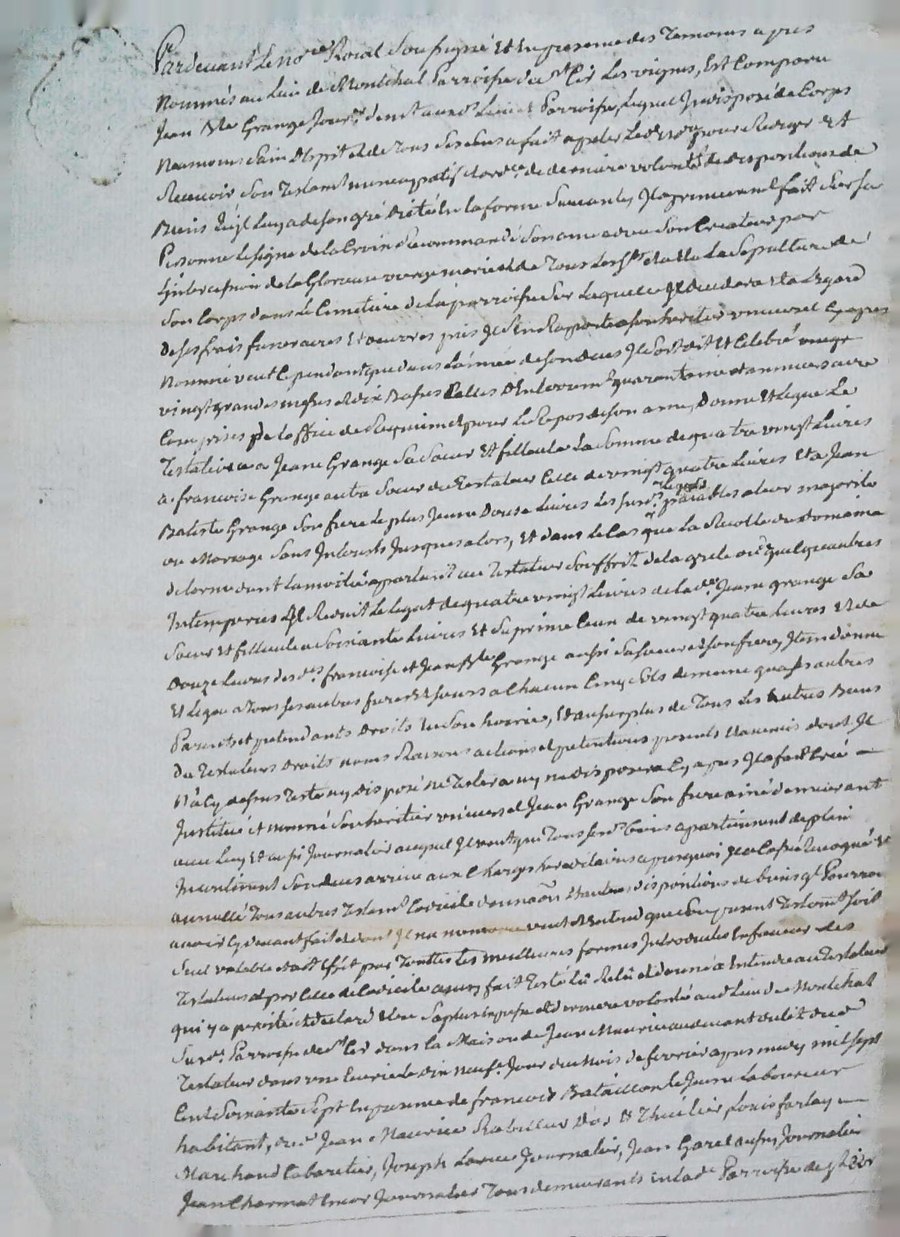 Pardevant Le no.re Roial Soussigné Et En presence des Temoins apres
Nommés au Lieu de Montchal Parroisse de St Cir Les vignes, Est Comparu
Jean Bte Grange Jour.er demt aud. Lieu et Parroisse, Lequel Indisposé de Corps
Neamoins Sain d'Esprit et de Tous Ses Sens a fait apeler Led. no.re pour Rediger Et
Recevoir Son Testamt nuncupatif et ord.ce de derniere volonté de dispositions de
Biens qu'il Luy a de Son gré dicté En la forme Suivante, Il a premierement fait Sur Sa
Personne Le Signe de la Croix Recommandé Son ame a dieu Son Createur par
L'intercession de la Glorieuse vierge marie et de Tous Les Sts La Sepulture de
Son Corps dans Le Cimetiere de la parroisse Sur Laquelle Il decedera Et a L'Egard
de Ses frais funeraires Et oeuvres pies Il S'En Raporte a Son heritier universel Cy apres
Nommé veut Cependant que dans L'année de Son deces Il Soit dit Et Celebré
vingt grandes messes et dix Basses Celles d'Enterremt quarantaine et anniversaire
Comprises de L'office de Requiem et pour Le Repos de Son ame, Donne Et Legue Le
Testateur a Jeane Grange Sa Soeur Et filleule La Somme de quatre vingt Livres
a francoise Grange autre Soeur du Testateur Celle de vingt quatre Livres Et a Jean
Batiste Grange Son frere Le plus Jeune Douze Livres Les Sus. Legats paiables a leur majorité
ou Mariage Sans Interests Jusques alors, Et dans Le Cas que La Recolte du Domaine
de Lorme dont La moitié apartient au Testateur Souffrit de la grele ou quelqu'autres
Intemperies Il Reduit Le Legat de quatre vingt Livres de lad. Jeane grange Sa
Soeur Et filleule a Soixante Livres Et Suprime Ceux de vingt quatre Livres Et de
Douze Livres desd. francoise et Jean Bte Grange aussi Sa Soeur et Son frere, Item donne
Et Legue a Tous Ses autres freres Et Soeurs a Chacun Cinq Sols de meme qua Ses autres
Parents et pretendants Droits En Son hoirie, Et au Surplus de Tous Les autres Biens
du Testateur Droits noms Raisons actions et pretentions presents Et avenir dont Il
N'a Cy dessus Testé ny disposé ne Testera ny ne disposera Cy apres Il a fait Creé
Institué et nommé Son heritier universel Jean Grange Son frere ainé demeurant
avec Luy Et aussi Journalier auquel Il veut que Tous Sesd. biens apartiennent de plein
Incontinent Son deces arrivé aux Charges hereditaires a pourquoi Il a Cassé Revoqué Et
annullé Tous autres Testamt Codicile donnaon Et autres dispositions de biens ql Pourroit
avoir Cy devant fait et dont Il na memoire veut Et Entend que Son present Testamt Soit
Seul valable Et ait Effet par Touttes Les meilleures formes Introduites En faveur des
Testateurs et par Celle de Codicile ainsy fait Testé Lû Relû et donné a Entendre au Testateur
qui y a persisté et declaré Etre Sa plus Expresse et derniere volonté aud. Lieu de Montchal
Susd. Parroisse de St Cir dans La Maison de Jean Maurice au devant du Lit dud
Testateur dans une Ecurie Le dix neuf. Jour du Mois de fevrier apres midy mil Sept
Cent Soixante Sept En presence de francois Bataillon Le Jeune Laboureur
habitant, Jean Maurice Thuilier Louis farlay
Marchand Cabaretier, Joseph Journalier, Jean Garel aussy Journalier
Jean Journalier Tous demeurants En lad. Parroisse de St Cir